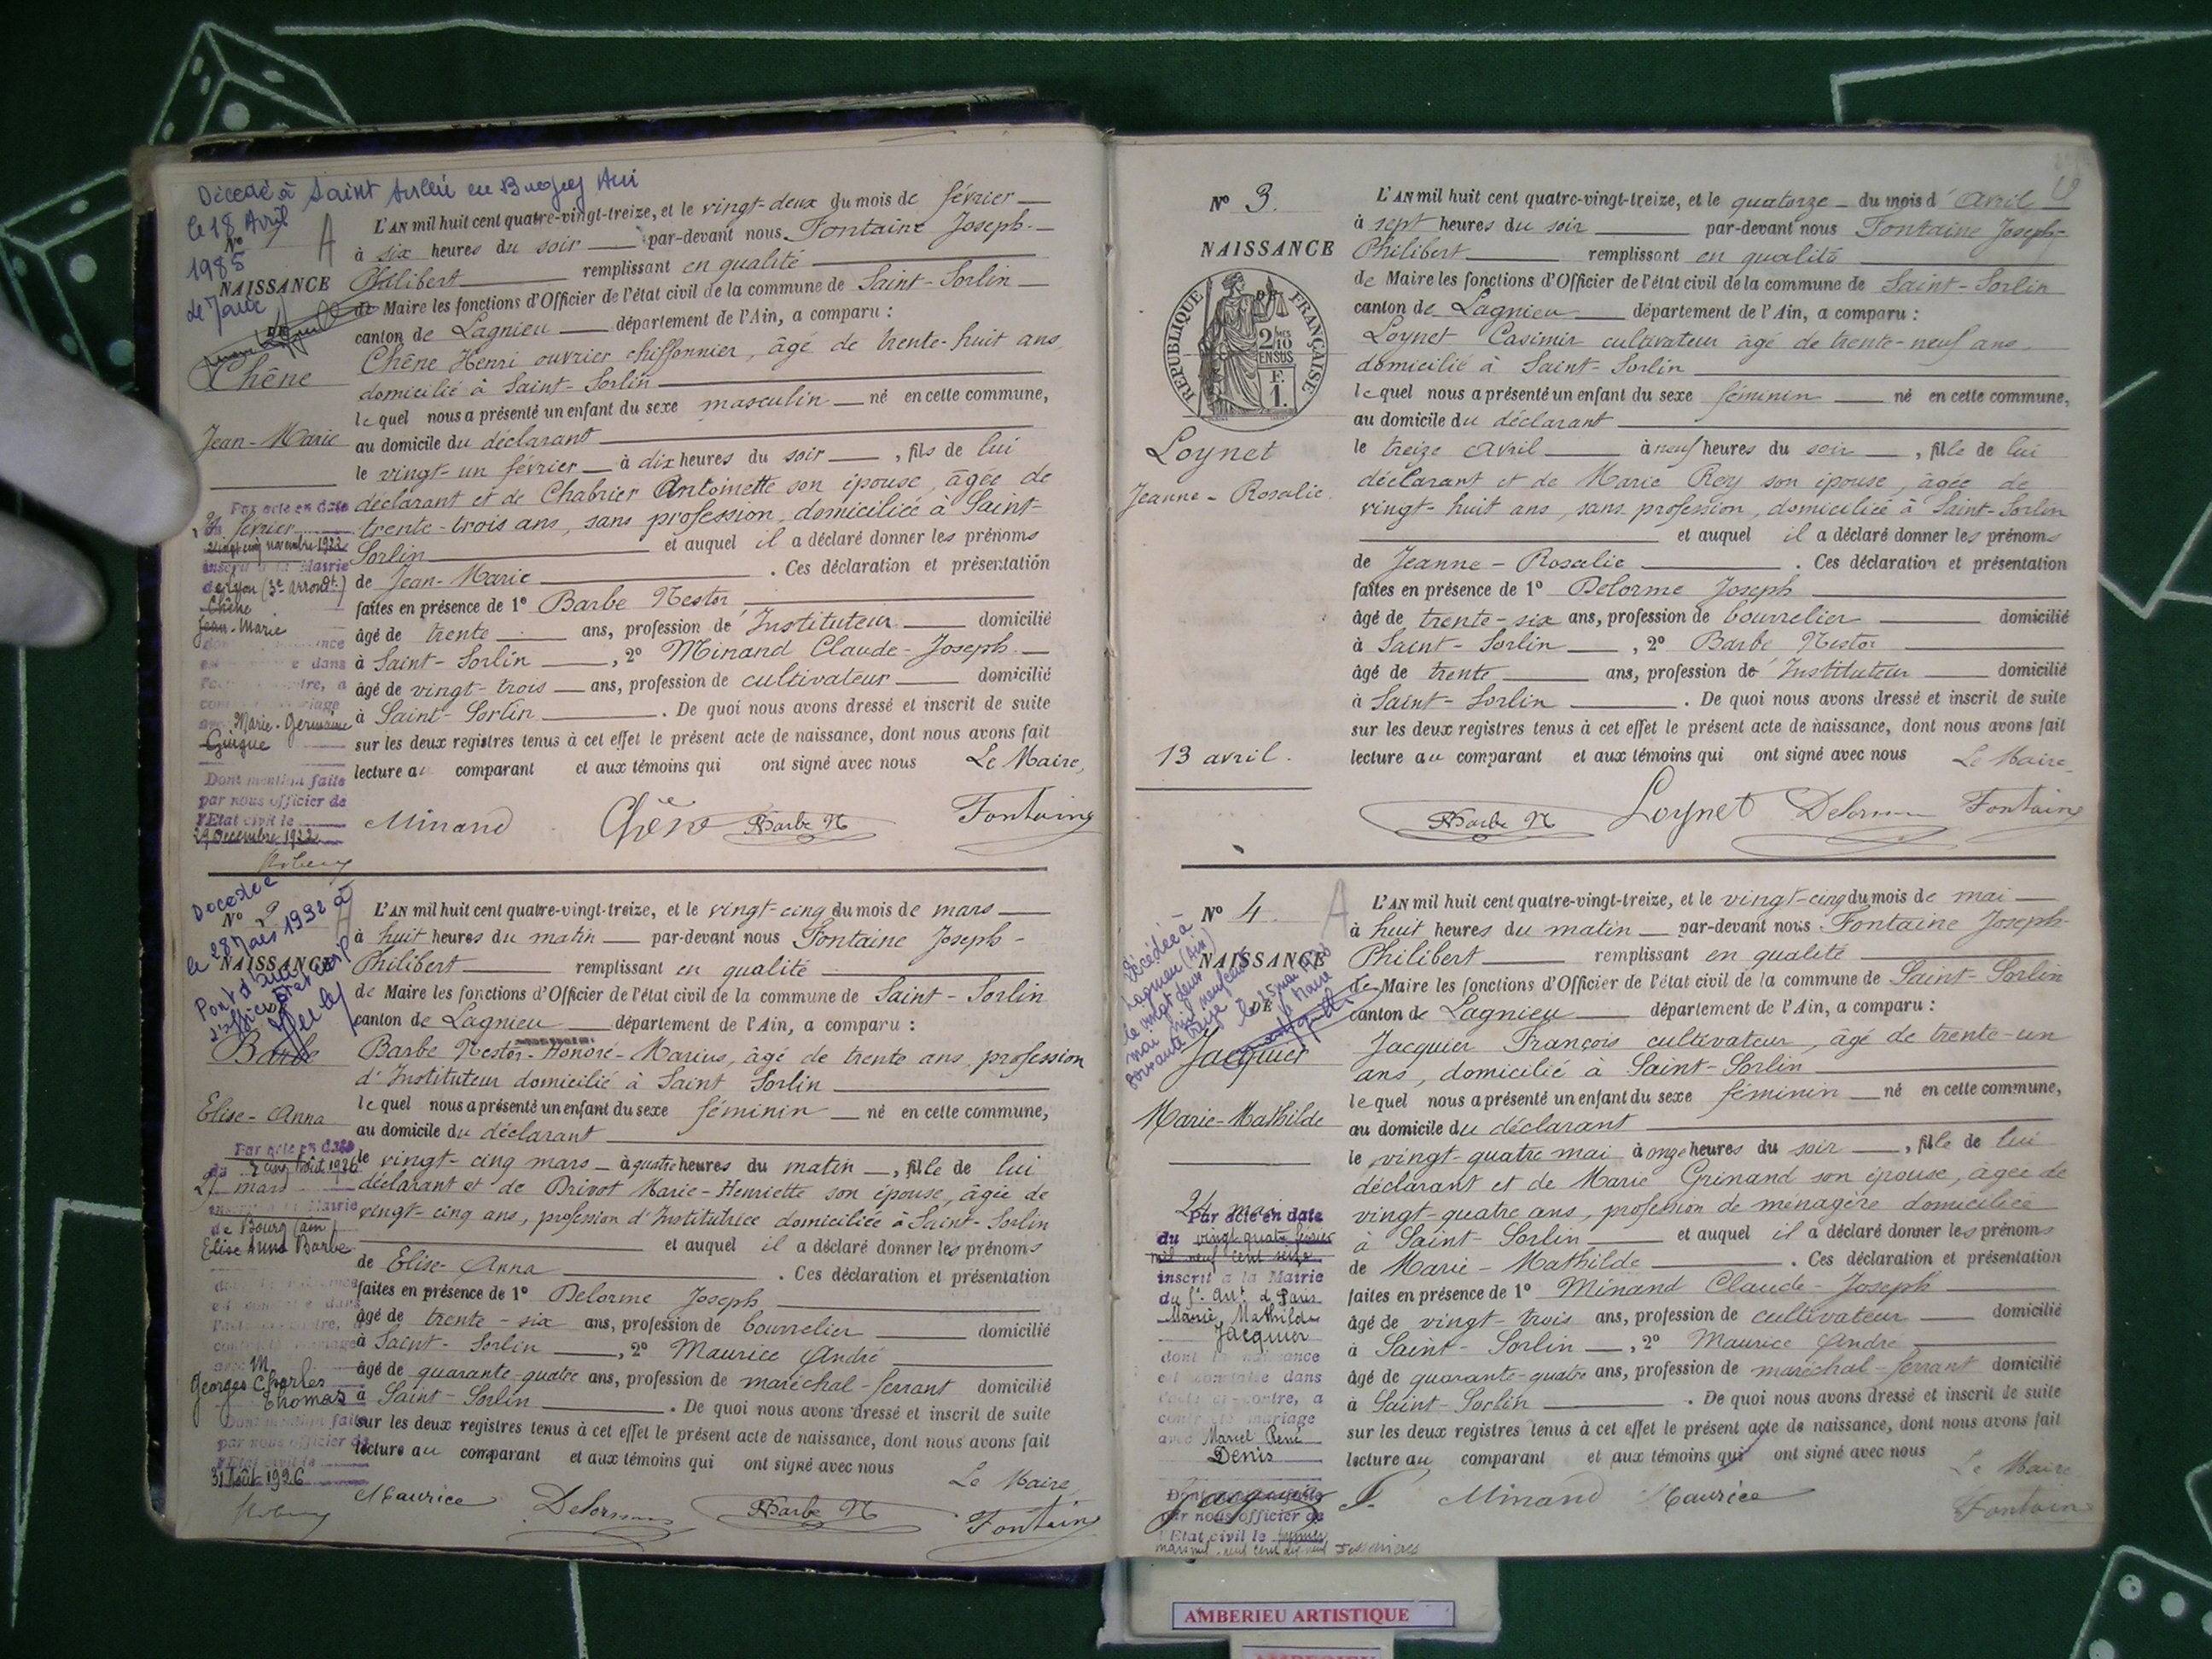 Décédé à Saint Sorlin en Bugey Ain
le 18 Avril
1985
Nº 1
A
NAISSANCE
Chêne
Jean-Marie
Par acte en date
vingt cinq novembre 1922
inscrit à la Mairie
de Lyon (3e arrondt.)
Chêne
Jean-Marie
Marie-Germaine
Guigue
Dont mention faite
par nous officier de
l'Etat civil le
29 Décembre 1922
L'AN mil huit cent quatre-vingt-treize, et le vingt-deux du mois de février
à six heures du soir par-devant nous Fontaine Joseph-
Philibert remplissant en qualité
de Maire les fonctions d'Officier de l'état civil de la commune de Saint-Sorlin
canton de Lagnieu département de l'Ain, a comparu :
Chêne Henri ouvrier chiffonnier, âgé de trente-huit ans,
domicilié à Saint-Sorlin
lequel nous a présenté un enfant du sexe masculin né en cette commune,
au domicile du déclarant
le vingt-un février à dix heures du soir , fils de lui
déclarant et de Chabrier Antoinette son épouse, âgée de
trente-trois ans, sans profession, domiciliée à Saint-
Sorlin et auquel il a déclaré donner les prénoms
de Jean-Marie . Ces déclaration et présentation
faites en présence de 1º Barbe Nestor
âgé de trente ans, profession de Instituteur domicilié
à Saint-Sorlin , 2º Minand Claude-Joseph
âgé de vingt-trois ans, profession de cultivateur domicilié
à Saint-Sorlin . De quoi nous avons dressé et inscrit de suite
sur les deux registres tenus à cet effet le présent acte de naissance, dont nous avons fait
lecture au comparant et aux témoins qui ont signé avec nous Le Maire,
Minand Chêne Barbe N Fontaine
Décédée
Nº 2
le 28 Mars 1932 à
NAISSANCE
Pont d'Ain
Barbe
Elise-Anna
Par acte en date
du 5 août 1926
inscrit à la Mairie
de Bourg (ain)
Elise Anna Barbe
avec M
Georges Charles
Thomas
Dont mention faite
par nous officier de
l'Etat civil le
31 Août 1926
L'AN mil huit cent quatre-vingt-treize, et le vingt-cinq du mois de mars
à huit heures du matin par-devant nous Fontaine Joseph-
Philibert remplissant en qualité
de Maire les fonctions d'Officier de l'état civil de la commune de Saint-Sorlin
canton de Lagnieu département de l'Ain, a comparu :
Barbe Nestor-Honoré-Marius, âgé de trente ans, profession
d'Instituteur domicilié à Saint Sorlin
lequel nous a présenté un enfant du sexe féminin né en cette commune,
au domicile du déclarant
le vingt-cinq mars à quatre heures du matin , fille de lui
déclarant et de Drivot Marie-Henriette son épouse, âgée de
vingt-cinq ans, profession d'Institutrice domiciliée à Saint-Sorlin
et auquel il a déclaré donner les prénoms
de Elise-Anna . Ces déclaration et présentation
faites en présence de 1º Delorme Joseph
âgé de trente-six ans, profession de bourrelier domicilié
à Saint-Sorlin , 2º Maurice André
âgé de quarante-quatre ans, profession de maréchal-ferrant domicilié
à Saint-Sorlin . De quoi nous avons dressé et inscrit de suite
sur les deux registres tenus à cet effet le présent acte de naissance, dont nous avons fait
lecture au comparant et aux témoins qui ont signé avec nous
Le Maire,
Maurice Delorme Barbe N Fontaine
Nº 3.
NAISSANCE
REPUBLIQUE FRANÇAISE
2/10
EN SUS
F.
1.
Loynet
Jeanne-Rosalie.
13 avril.
L'AN mil huit cent quatre-vingt-treize, et le quatorze du mois d'avril
à sept heures du soir par-devant nous Fontaine Joseph-
Philibert remplissant en qualité
de Maire les fonctions d'Officier de l'état civil de la commune de Saint-Sorlin
canton de Lagnieu département de l'Ain, a comparu :
Loynet Casimir cultivateur âgé de trente-neuf ans,
domicilié à Saint-Sorlin
lequel nous a présenté un enfant du sexe féminin né en cette commune,
au domicile du déclarant
le treize avril à neuf heures du soir , fille de lui
déclarant et de Marie Rey son épouse, âgée de
vingt-huit ans, sans profession, domiciliée à Saint-Sorlin
et auquel il a déclaré donner les prénoms
de Jeanne-Rosalie . Ces déclaration et présentation
faites en présence de 1º Delorme Joseph
âgé de trente-six ans, profession de bourrelier domicilié
à Saint-Sorlin , 2º Barbe Nestor
âgé de trente ans, profession de Instituteur domicilié
à Saint-Sorlin . De quoi nous avons dressé et inscrit de suite
sur les deux registres tenus à cet effet le présent acte de naissance, dont nous avons fait
lecture au comparant et aux témoins qui ont signé avec nous Le Maire
Barbe N Loynet Delorme Fontaine
Nº 4.
A
NAISSANCE
DE
Décédée à
Lagnieu (Ain)
le vingt deux
mai mil neuf cent
soixante treize
le Maire
Jacquier
Marie-Mathilde
24 mai
Par acte en date
du vingt quatre février
mil neuf cent seize
inscrit à la Mairie
Marie Mathilde
Jacquier
dont la naissance
est constatée dans
l'acte ci-contre, a
contracté mariage
avec Marcel René
Denis
par nous officier de
l'Etat civil le premier
L'AN mil huit cent quatre-vingt-treize, et le vingt-cinq du mois de mai
à huit heures du matin par-devant nous Fontaine Joseph-
Philibert remplissant en qualité
de Maire les fonctions d'Officier de l'état civil de la commune de Saint-Sorlin
canton de Lagnieu département de l'Ain, a comparu :
Jacquier François cultivateur, âgé de trente-un
ans, domicilié à Saint-Sorlin
lequel nous a présenté un enfant du sexe féminin né en cette commune,
au domicile du déclarant
le vingt-quatre mai à onze heures du soir , fille de lui
déclarant et de Marie Grinand son épouse, âgée de
vingt-quatre ans, profession de ménagère domiciliée
à Saint-Sorlin et auquel il a déclaré donner les prénoms
de Marie-Mathilde . Ces déclaration et présentation
faites en présence de 1º Minand Claude-Joseph
âgé de vingt-trois ans, profession de cultivateur domicilié
à Saint-Sorlin , 2º Maurice André
âgé de quarante-quatre ans, profession de maréchal-ferrant domicilié
à Saint-Sorlin . De quoi nous avons dressé et inscrit de suite
sur les deux registres tenus à cet effet le présent acte de naissance, dont nous avons fait
lecture au comparant et aux témoins qui ont signé avec nous
Le Maire
Minand Maurice Fontaine
AMBERIEU ARTISTIQUE